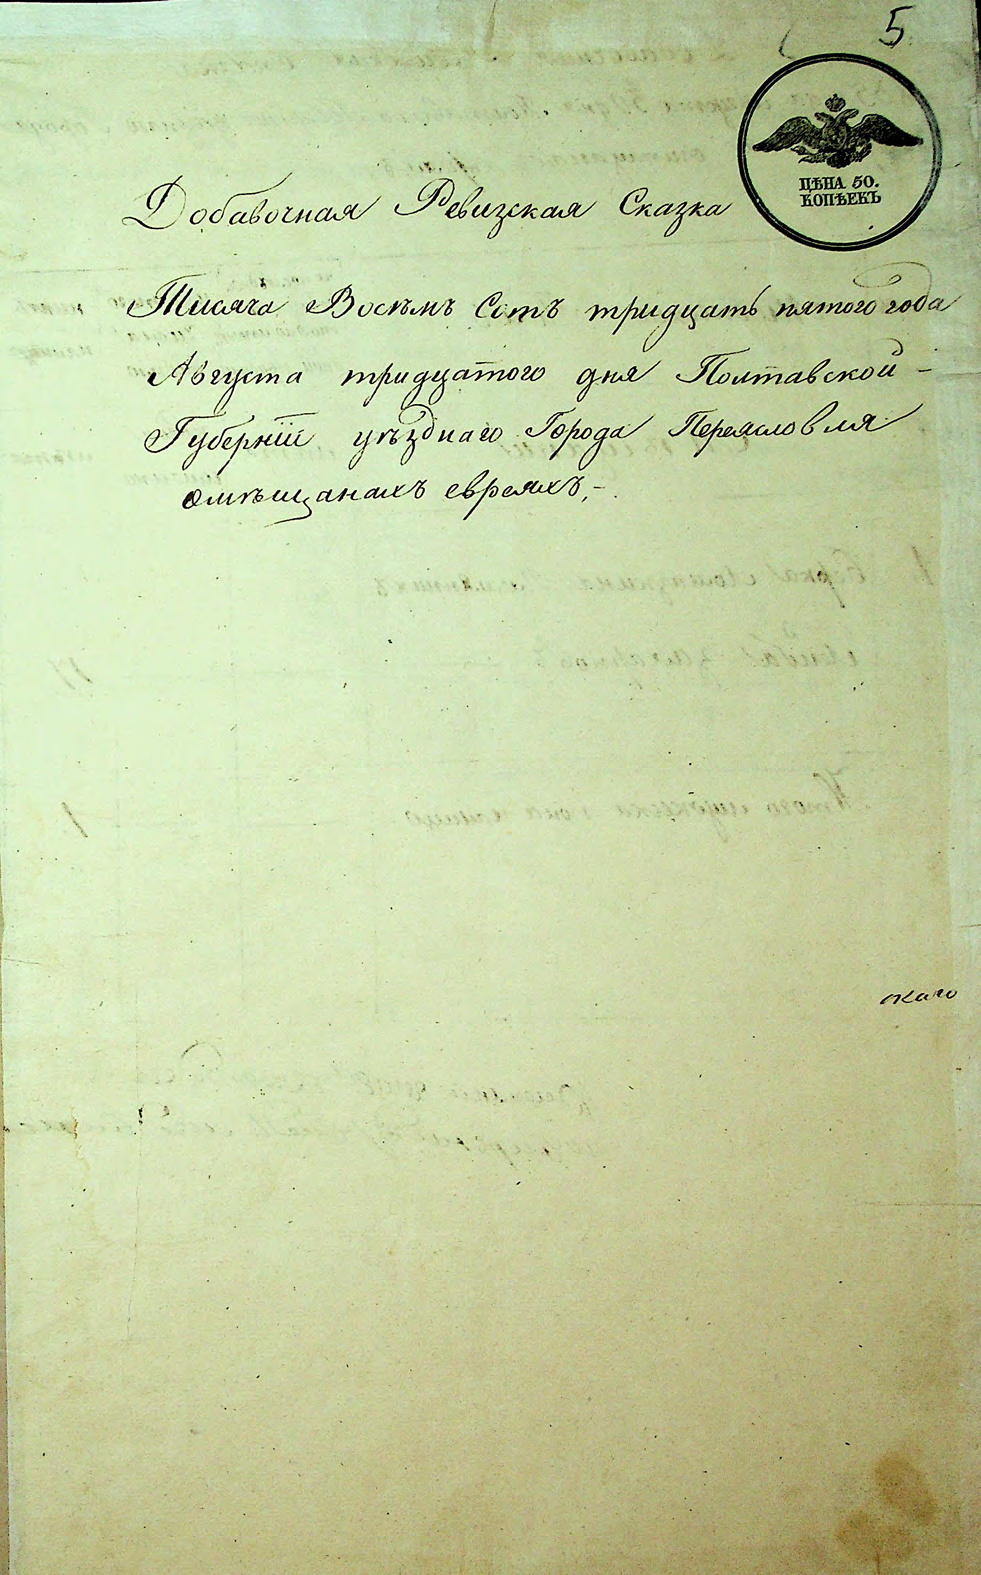 5
ЦѢНА 50.
КОПѢЕКЪ
Добавочная Ревизская Сказка
Тисяча Восѣмъ Сотъ тридцать пятого года
Августа тридцатого дня Полтавской -
Губернiи уѣзднаго Города Переясловля
омѣщанахъ евреяхъ,-